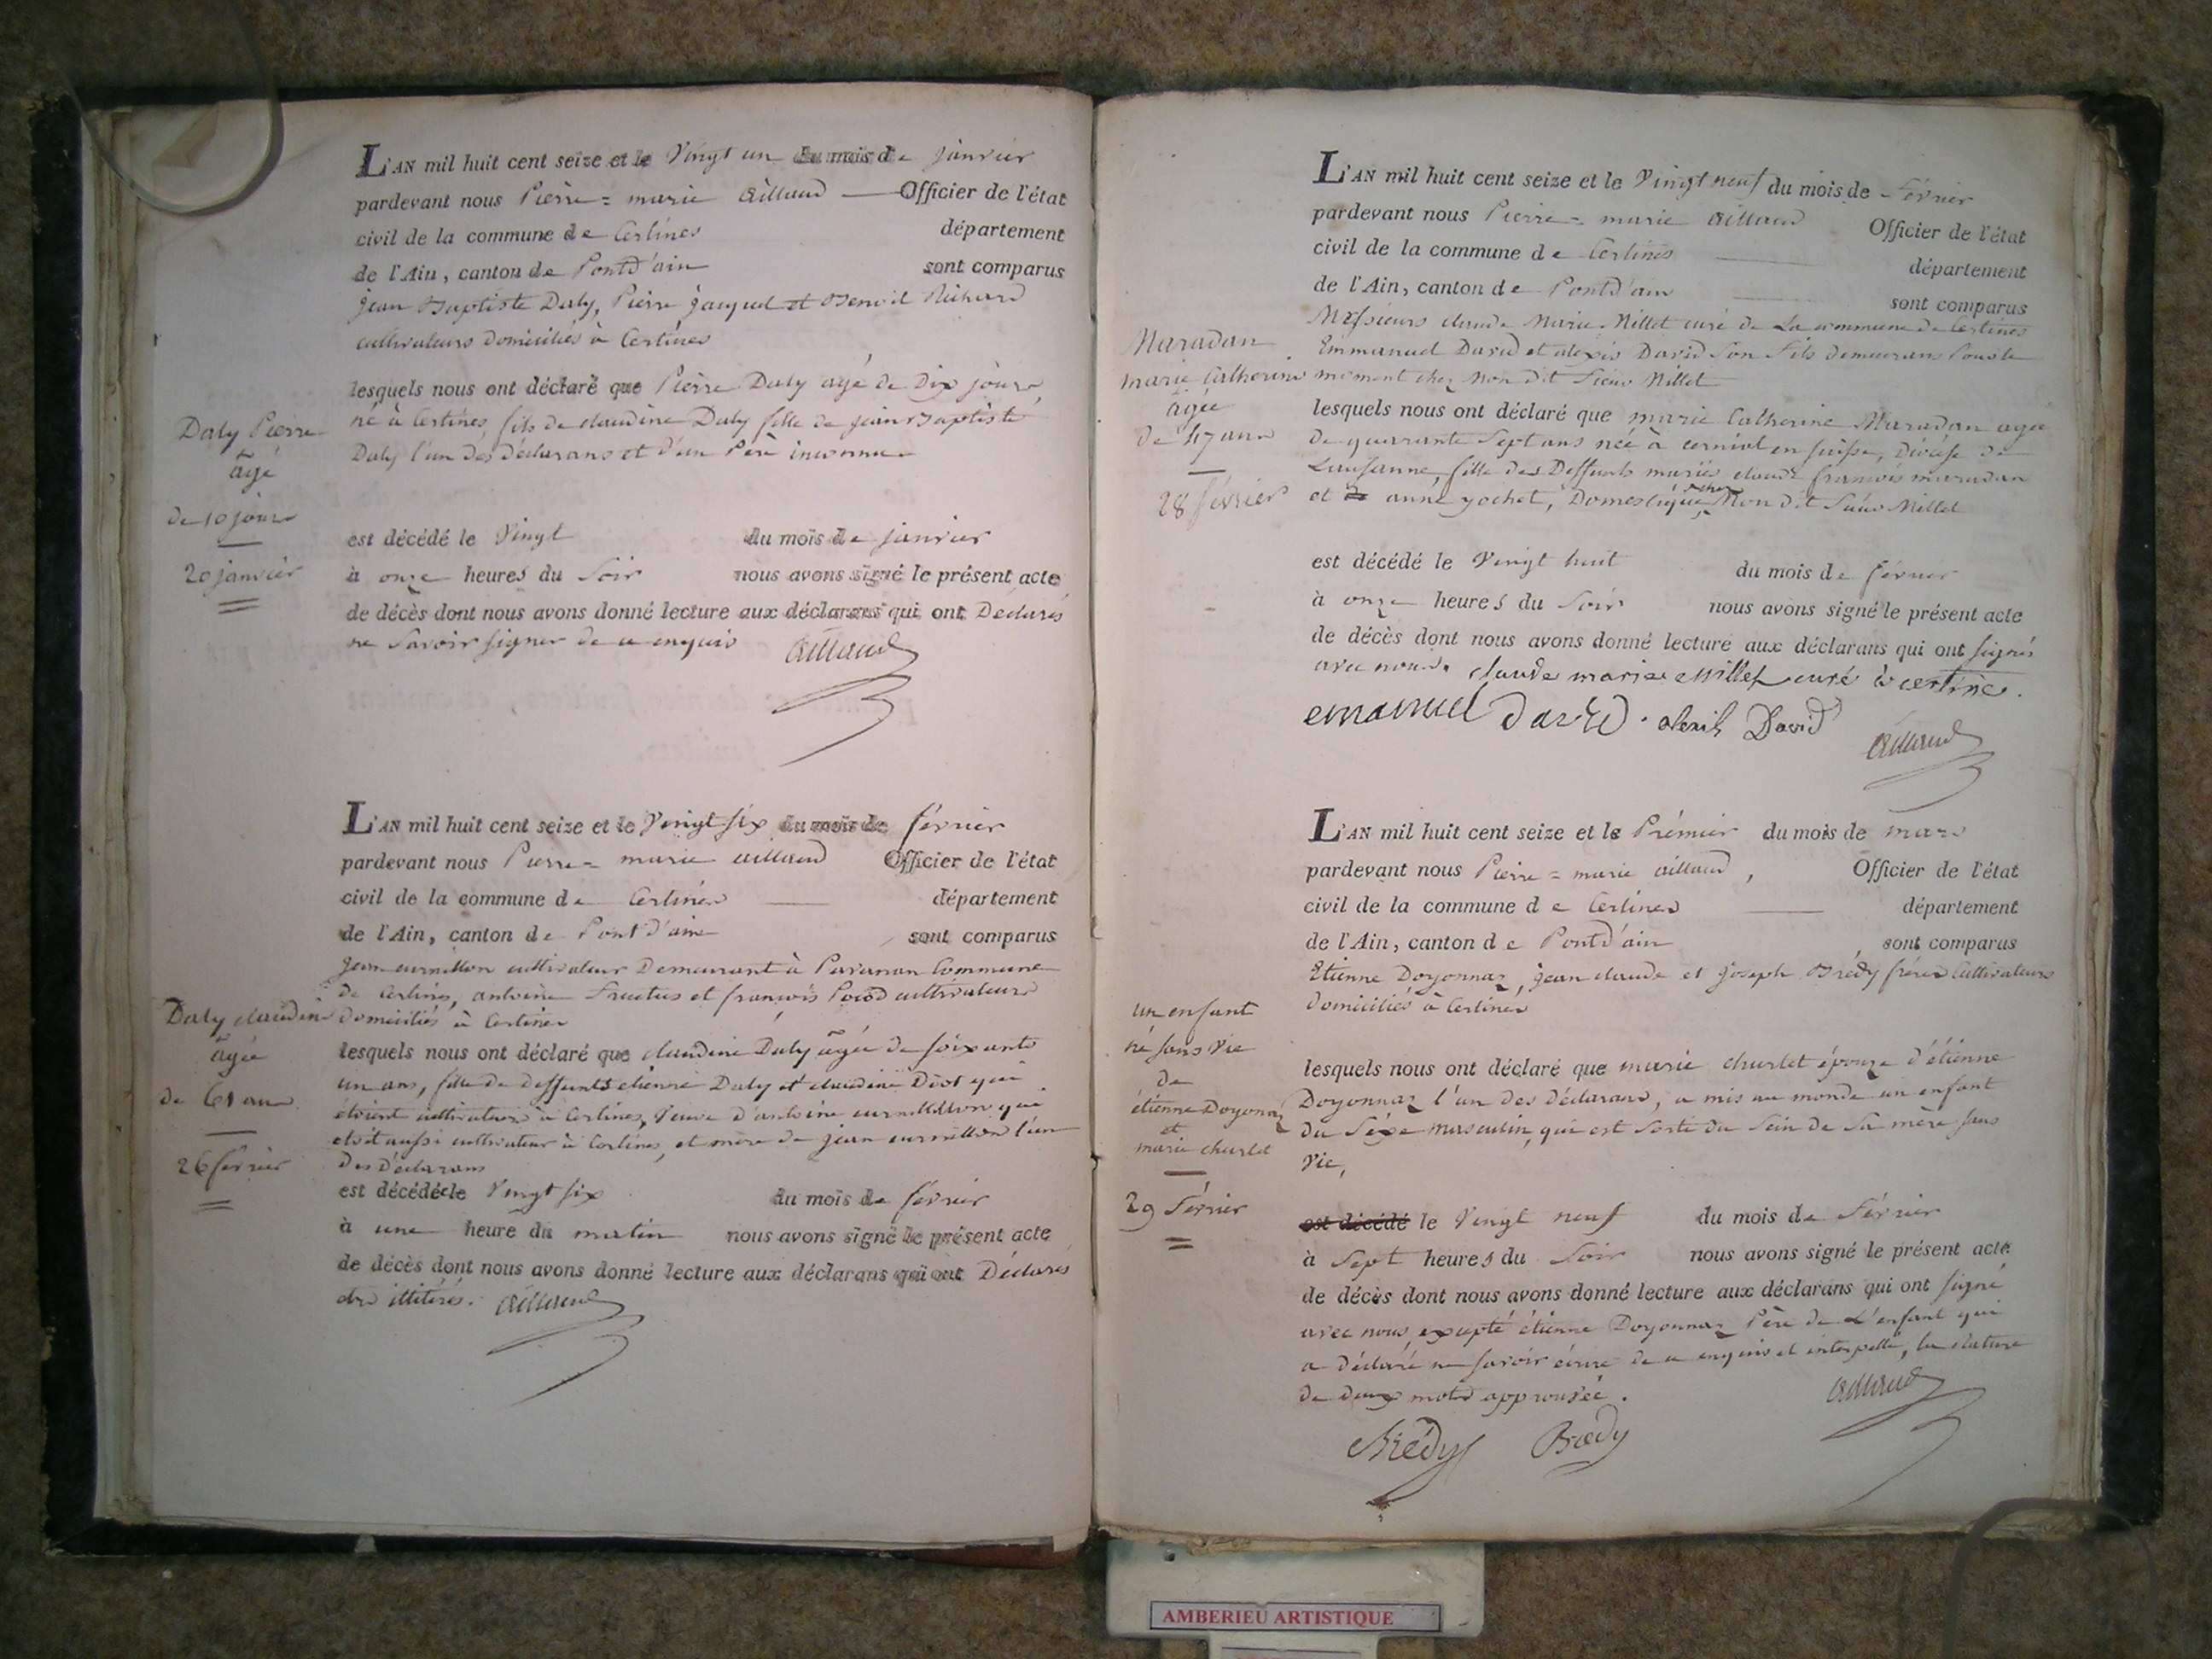 L'AN mil huit cent seize et le Vingt un du mois de janvier
pardevant nous Pierre = marie aillaud Officier de l'état
civil de la commune de Certines département
de l'Ain, canton de Pontd'ain sont comparus
jean Baptiste Daly, Pierre jacquet et Benoit Richard
cultivateurs Domiciliés à Certines
lesquels nous ont déclaré que Pierre Daly agé de Dix jours,
né à Certines, fils de claudine Daly fille de jean Baptiste
Daly l'un des déclarans et d'un Père inconnu
Daly Pierre
âgé
de 10 jours
20 janvier
est décédé le Vingt du mois de janvier
à onze heures du Soir nous avons signé le présent acte
de décès dont nous avons donné lecture aux déclarans qui ont Déclarés
ne Savoir signer de ce enquis aillaud
L'AN mil huit cent seize et le Vingt six du mois de février
pardevant nous Pierre = marie aillaud Officier de l'état
civil de la commune de Certines département
de l'Ain, canton de Pont d'ain sont comparus
jean curnillon cultivateur Demeurant à Commune
de Certines, antoine Fructus et françois cultivateurs
domiciliés à Certines
lesquels nous ont déclaré que claudine Daly âgée de soixante
un ans, fille de deffunts etienne Daly et claudine qui
étoient cultivateurs à Certines, Veuve d'antoine curnillon qui
etoit aussi cultivateur à Certines, et mère de jean curnillon l'un
des Déclarans
Daly claudine
âgée
de 61 ans
26 février
est décédée le Vingt six du mois de février
à une heure du matin nous avons signé le présent acte
de décès dont nous avons donné lecture aux déclarans qui ont Déclarés
être illitérés. aillaud
L'AN mil huit cent seize et le Vingt neuf du mois de février
pardevant nous Pierre = marie aillaud Officier de l'état
civil de la commune de Certines département
de l'Ain, canton de Pontd'ain sont comparus
Messieurs claude Marie Millet curé de La commune de Certines
Emmanuel David et alexis David Son fils demeurans Pour le
moment chez Mon dit Sieur Millet
lesquels nous ont déclaré que marie Catherine Maradan agée
de quarante Sept ans née à cerniat en suisse, Diocèse de
Lausanne, fille des Deffunts mariés claude françois maradan
et anne yochet, Domestique chez Mon dit Sieur Millet
Maradan
marie Catherine
âgée
de 47 ans
28 février
est décédé le Vingt huit du mois de février
à onze heures du Soir nous avons signé le présent acte
de décès dont nous avons donné lecture aux déclarans qui ont signés
avec nous. claude marie Millet curé à certines.
emanuel david. alexis David
aillaud
L'AN mil huit cent seize et le Prémier du mois de mars
pardevant nous Pierre = marie aillaud, Officier de l'état
civil de la commune de Certines département
de l'Ain, canton de Pontd'ain sont comparus
Etienne Doyonnaz, jean claude et joseph Brédy frères Cultivateurs
domiciliés à Certines
lesquels nous ont déclaré que marie churlet épouze d'étienne
Doyonnaz l'un des déclarans, a mis au monde un enfant
du Séxe masculin, qui est Sorti du Sein de Sa mère sans
Vie,
un enfant
né sans Vie
de
étienne Doyonnaz
et
marie churlet
29 février
est décédé le Vingt neuf du mois de février
à Sept heures du Soir nous avons signé le présent acte
de décès dont nous avons donné lecture aux déclarans qui ont signé
avec nous, excepté étienne Doyonnaz Père de L'enfant qui
a déclaré ne savoir écrire de ce enquis et interpellé, la rature
de deux mots approuvée. aillaud
Brédy Brédy
AMBERIEU ARTISTIQUE